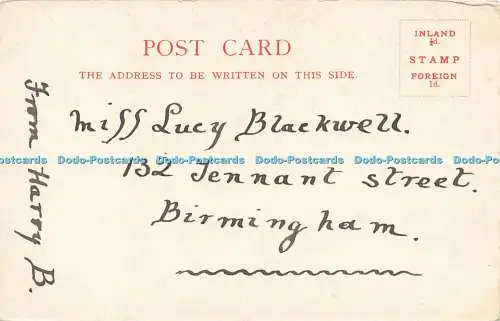 POST CARD
THE ADDRESS TO BE WRITTEN ON THIS SIDE.
INLAND
½d.
STAMP
FOREIGN
1d.
Miss Lucy Blackwell.
132 Tennant street.
Birmingham.
From Harry B.
Dodo-Postcards Dodo-Postcards Dodo-Postcards Dodo-Postcards Dodo-Postcards Dodo-Postcards